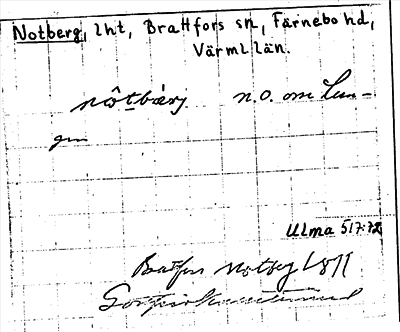 Notberg, lht, Brattfors sn, Färnebo hd,
Värml. län.
nôtbærj n.o. om Lun-
gen
Ulma 517:72
Brattfors Notberg